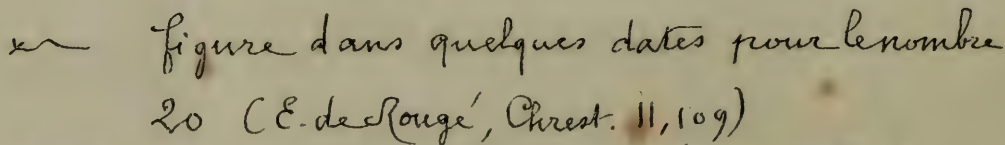 figure dans quelques dates pour le nombre
20 (E. de Rougé, Chrest. II, 109)